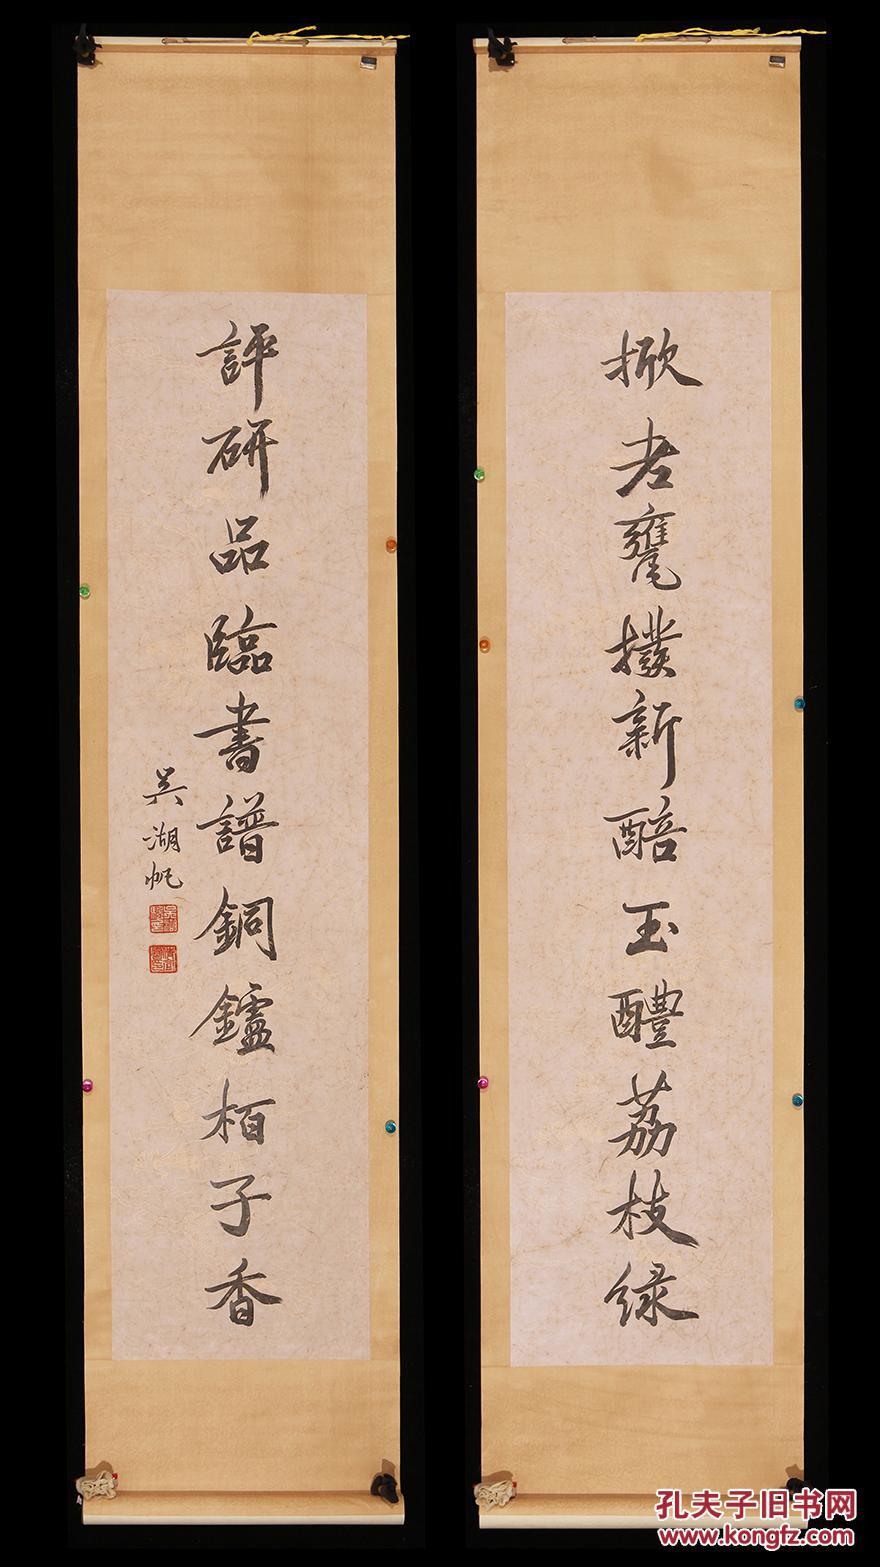 掀老甕撥新醅玉醴荔枝绿
評研品臨書譜銅鑪栢子香
吴湖帆
孔夫子旧书网
www.kongfz.com